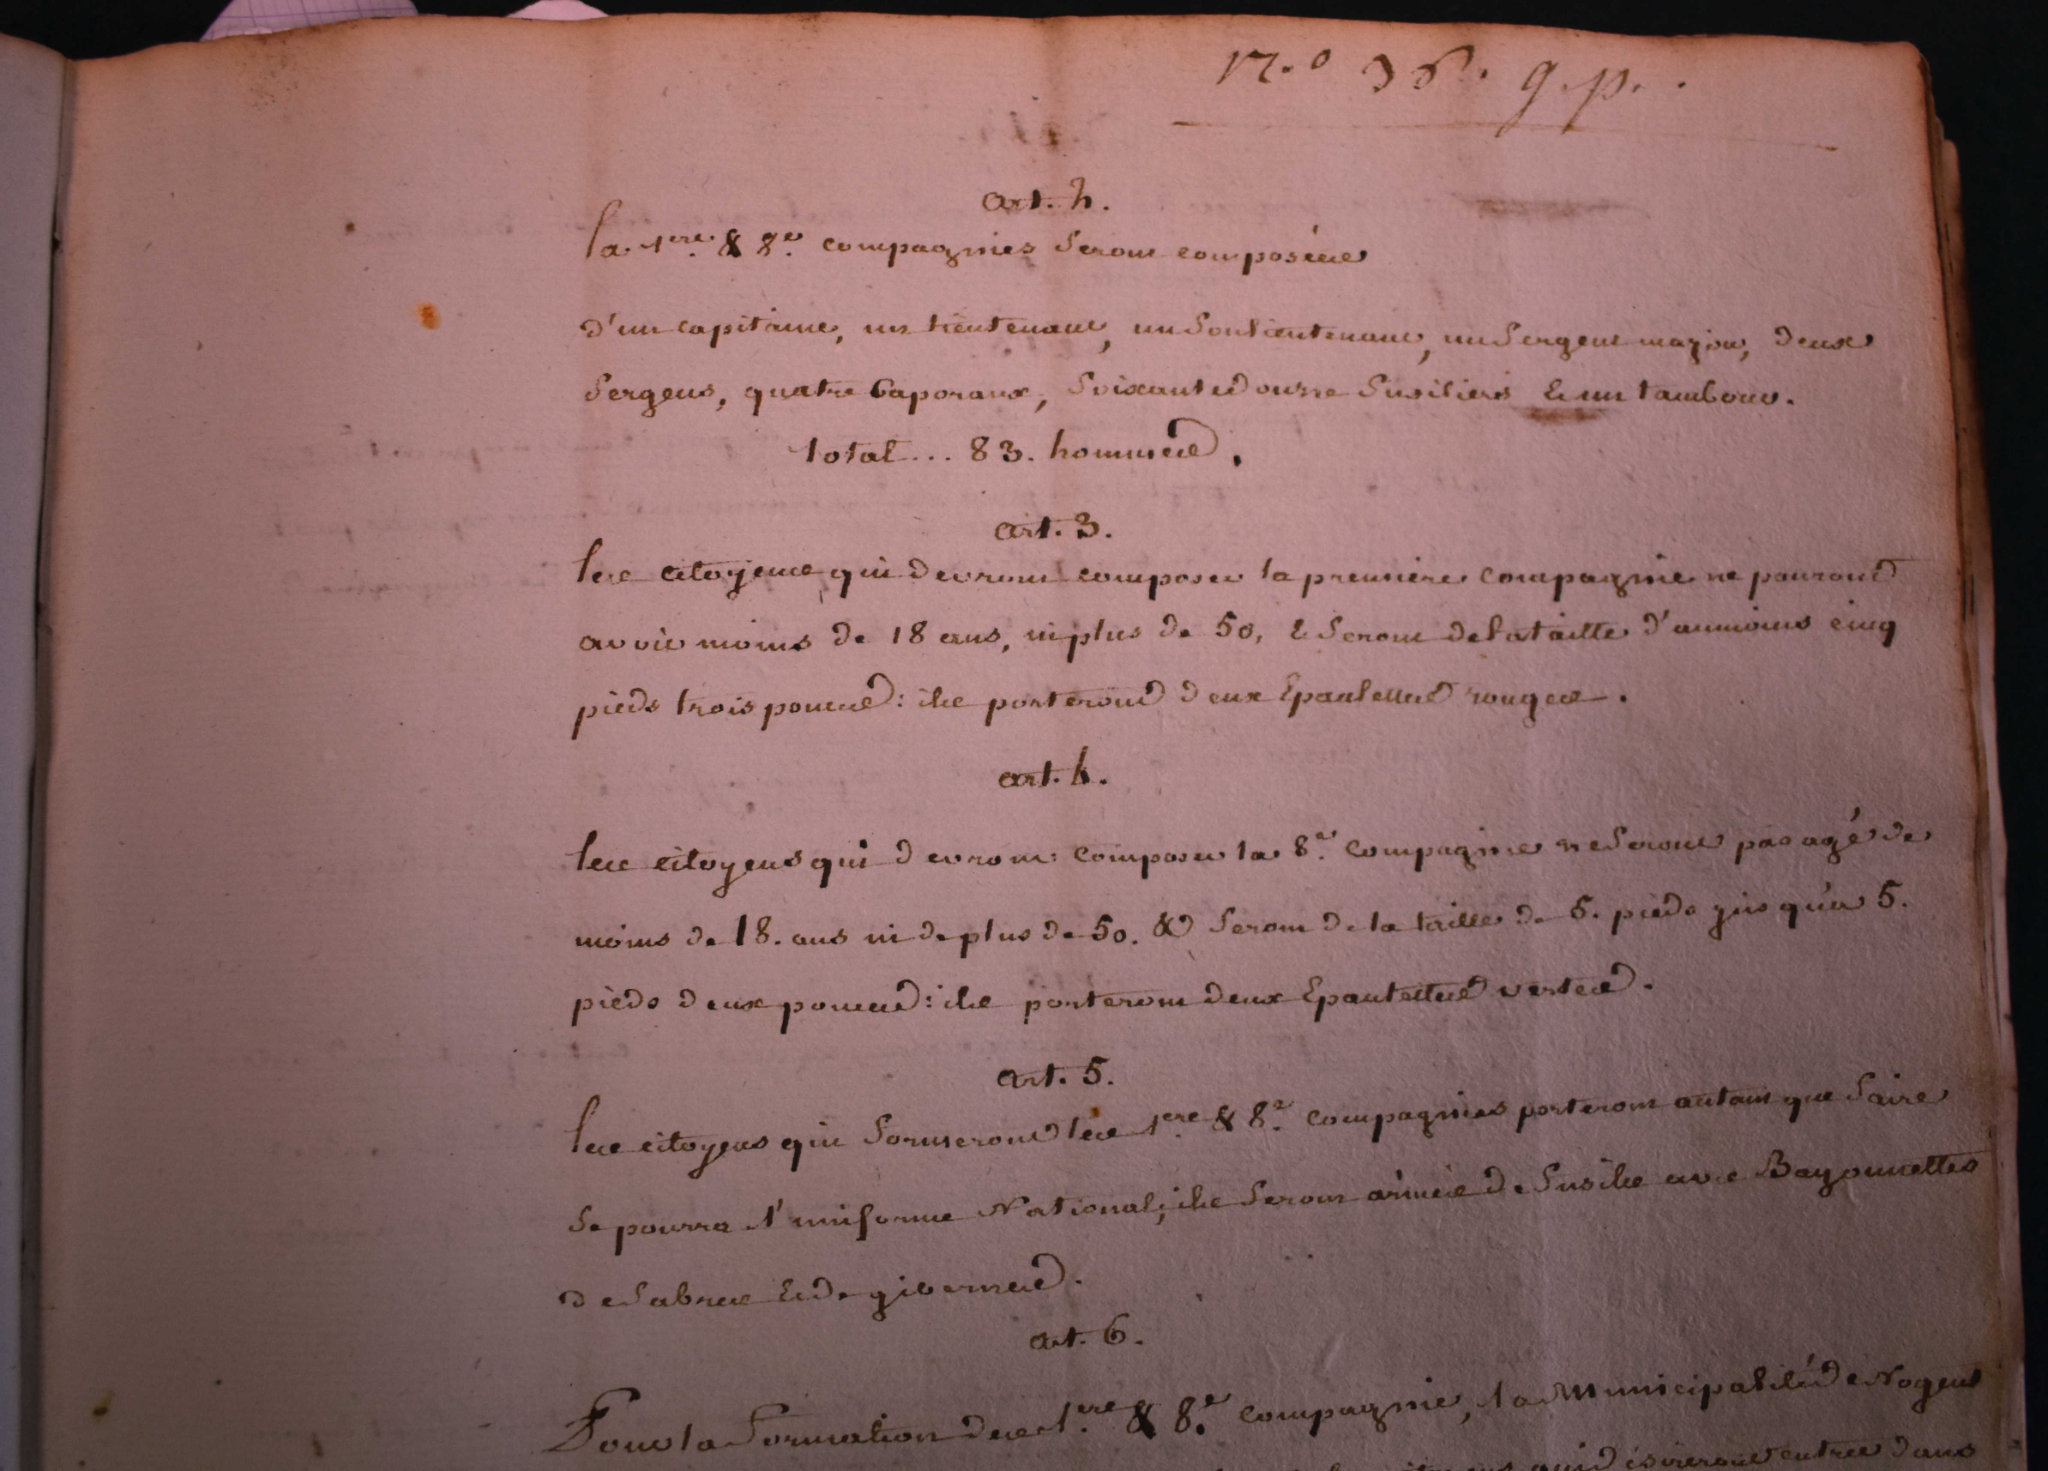 n.o 36. g. p.
art. 2.
la 1ere. & 8e. compagnies seront composées
d'un capitaine, un lieutenant, un soulieutenant, un sergent major, deux
sergens, quatre caporaux, soixantedouze fusiliers & un tambour.
total... 83. hommes.
art. 3.
les citoyens qui devront composer la premiere compagnie ne pouront
avoir moins de 18 ans, ni plus de 50, & seront de la taille d'aumoins cinq
pieds trois pouces: ils porteront deux Epaulettes rouges.
art. 4.
les citoyens qui devront composer la 8e. compagnie ne seront pas agé de
moins de 18. ans ni de plus de 50. & seront de la taille de 5. pieds jusqu'a 5.
pieds deux pouces: ils porteront deux Epaulettes vertes.
art. 5.
les citoyens qui formeront les 1ere. & 8e. compagnies porteront autant que faire
se pourra l'uniforme National; ils seront armés de fusils avec Bayonnettes
de sabres & de gibernes.
art. 6.
Pour la formation des 1ere. & 8.e compagnie, la Municipalité de Nogent
qui désireront entrer dans